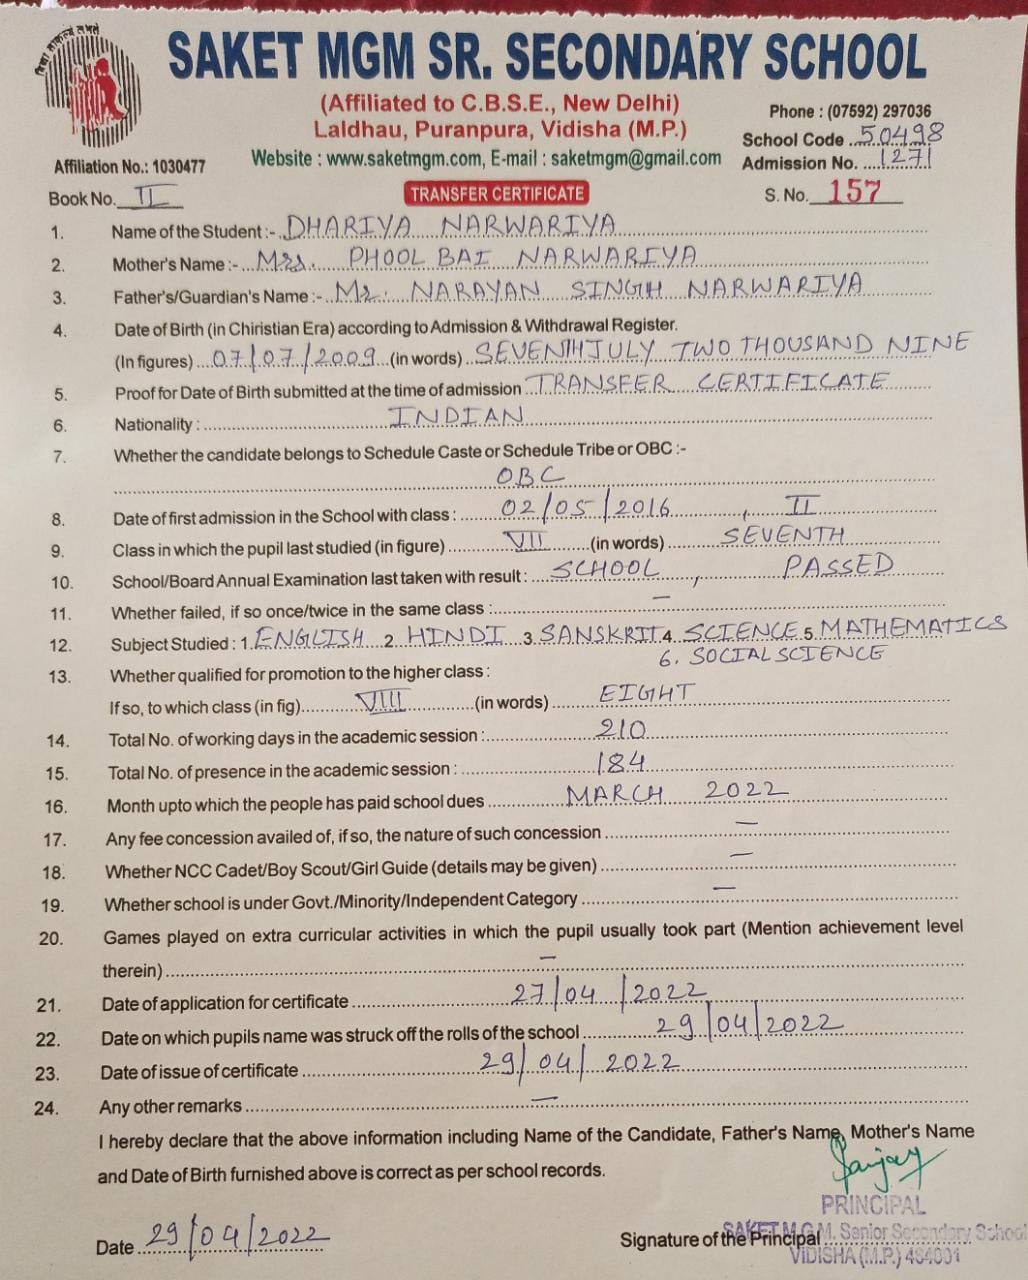 SAKET MGM SR. SECONDARY SCHOOL
(Affiliated to C.B.S.E., New Delhi)
Laldhau, Puranpura, Vidisha (M.P.)
Website : www.saketmgm.com, E-mail : saketmgm@gmail.com
Phone : (07592) 297036
School Code 50498
Admission No. 1271
Affiliation No.: 1030477
Book No. II
TRANSFER CERTIFICATE
S. No. 157
1. Name of the Student :- DHARIYA NARWARIYA
2. Mother's Name :- Mrs. PHOOL BAI NARWARIYA
3. Father's/Guardian's Name :- Mr. NARAYAN SINGH NARWARIYA
4. Date of Birth (in Chiristian Era) according to Admission & Withdrawal Register.
(In figures) 07/07/2009 (in words) SEVENTH JULY TWO THOUSAND NINE
5. Proof for Date of Birth submitted at the time of admission TRANSFER CERTIFICATE
6. Nationality : INDIAN
7. Whether the candidate belongs to Schedule Caste or Schedule Tribe or OBC :-
OBC
8. Date of first admission in the School with class : 02/05/2016, II
9. Class in which the pupil last studied (in figure) VII (in words) SEVENTH
10. School/Board Annual Examination last taken with result : SCHOOL, PASSED
11. Whether failed, if so once/twice in the same class : —
12. Subject Studied : 1. ENGLISH 2. HINDI 3. SANSKRIT 4. SCIENCE 5. MATHEMATICS
6. SOCIAL SCIENCE
13. Whether qualified for promotion to the higher class :
If so, to which class (in fig) VIII (in words) EIGHT
14. Total No. of working days in the academic session : 210
15. Total No. of presence in the academic session : 184
16. Month upto which the people has paid school dues MARCH 2022
17. Any fee concession availed of, if so, the nature of such concession —
18. Whether NCC Cadet/Boy Scout/Girl Guide (details may be given) —
19. Whether school is under Govt./Minority/Independent Category —
20. Games played on extra curricular activities in which the pupil usually took part (Mention achievement level
therein) —
21. Date of application for certificate 27/04/2022
22. Date on which pupils name was struck off the rolls of the school 29/04/2022
23. Date of issue of certificate 29/04/2022
24. Any other remarks —
I hereby declare that the above information including Name of the Candidate, Father's Name, Mother's Name
and Date of Birth furnished above is correct as per school records.
Sanjay
PRINCIPAL
Date 29/04/2022
Signature of the Principal
SAKET M.G.M. Senior Secondary School
VIDISHA (M.P.) 464001